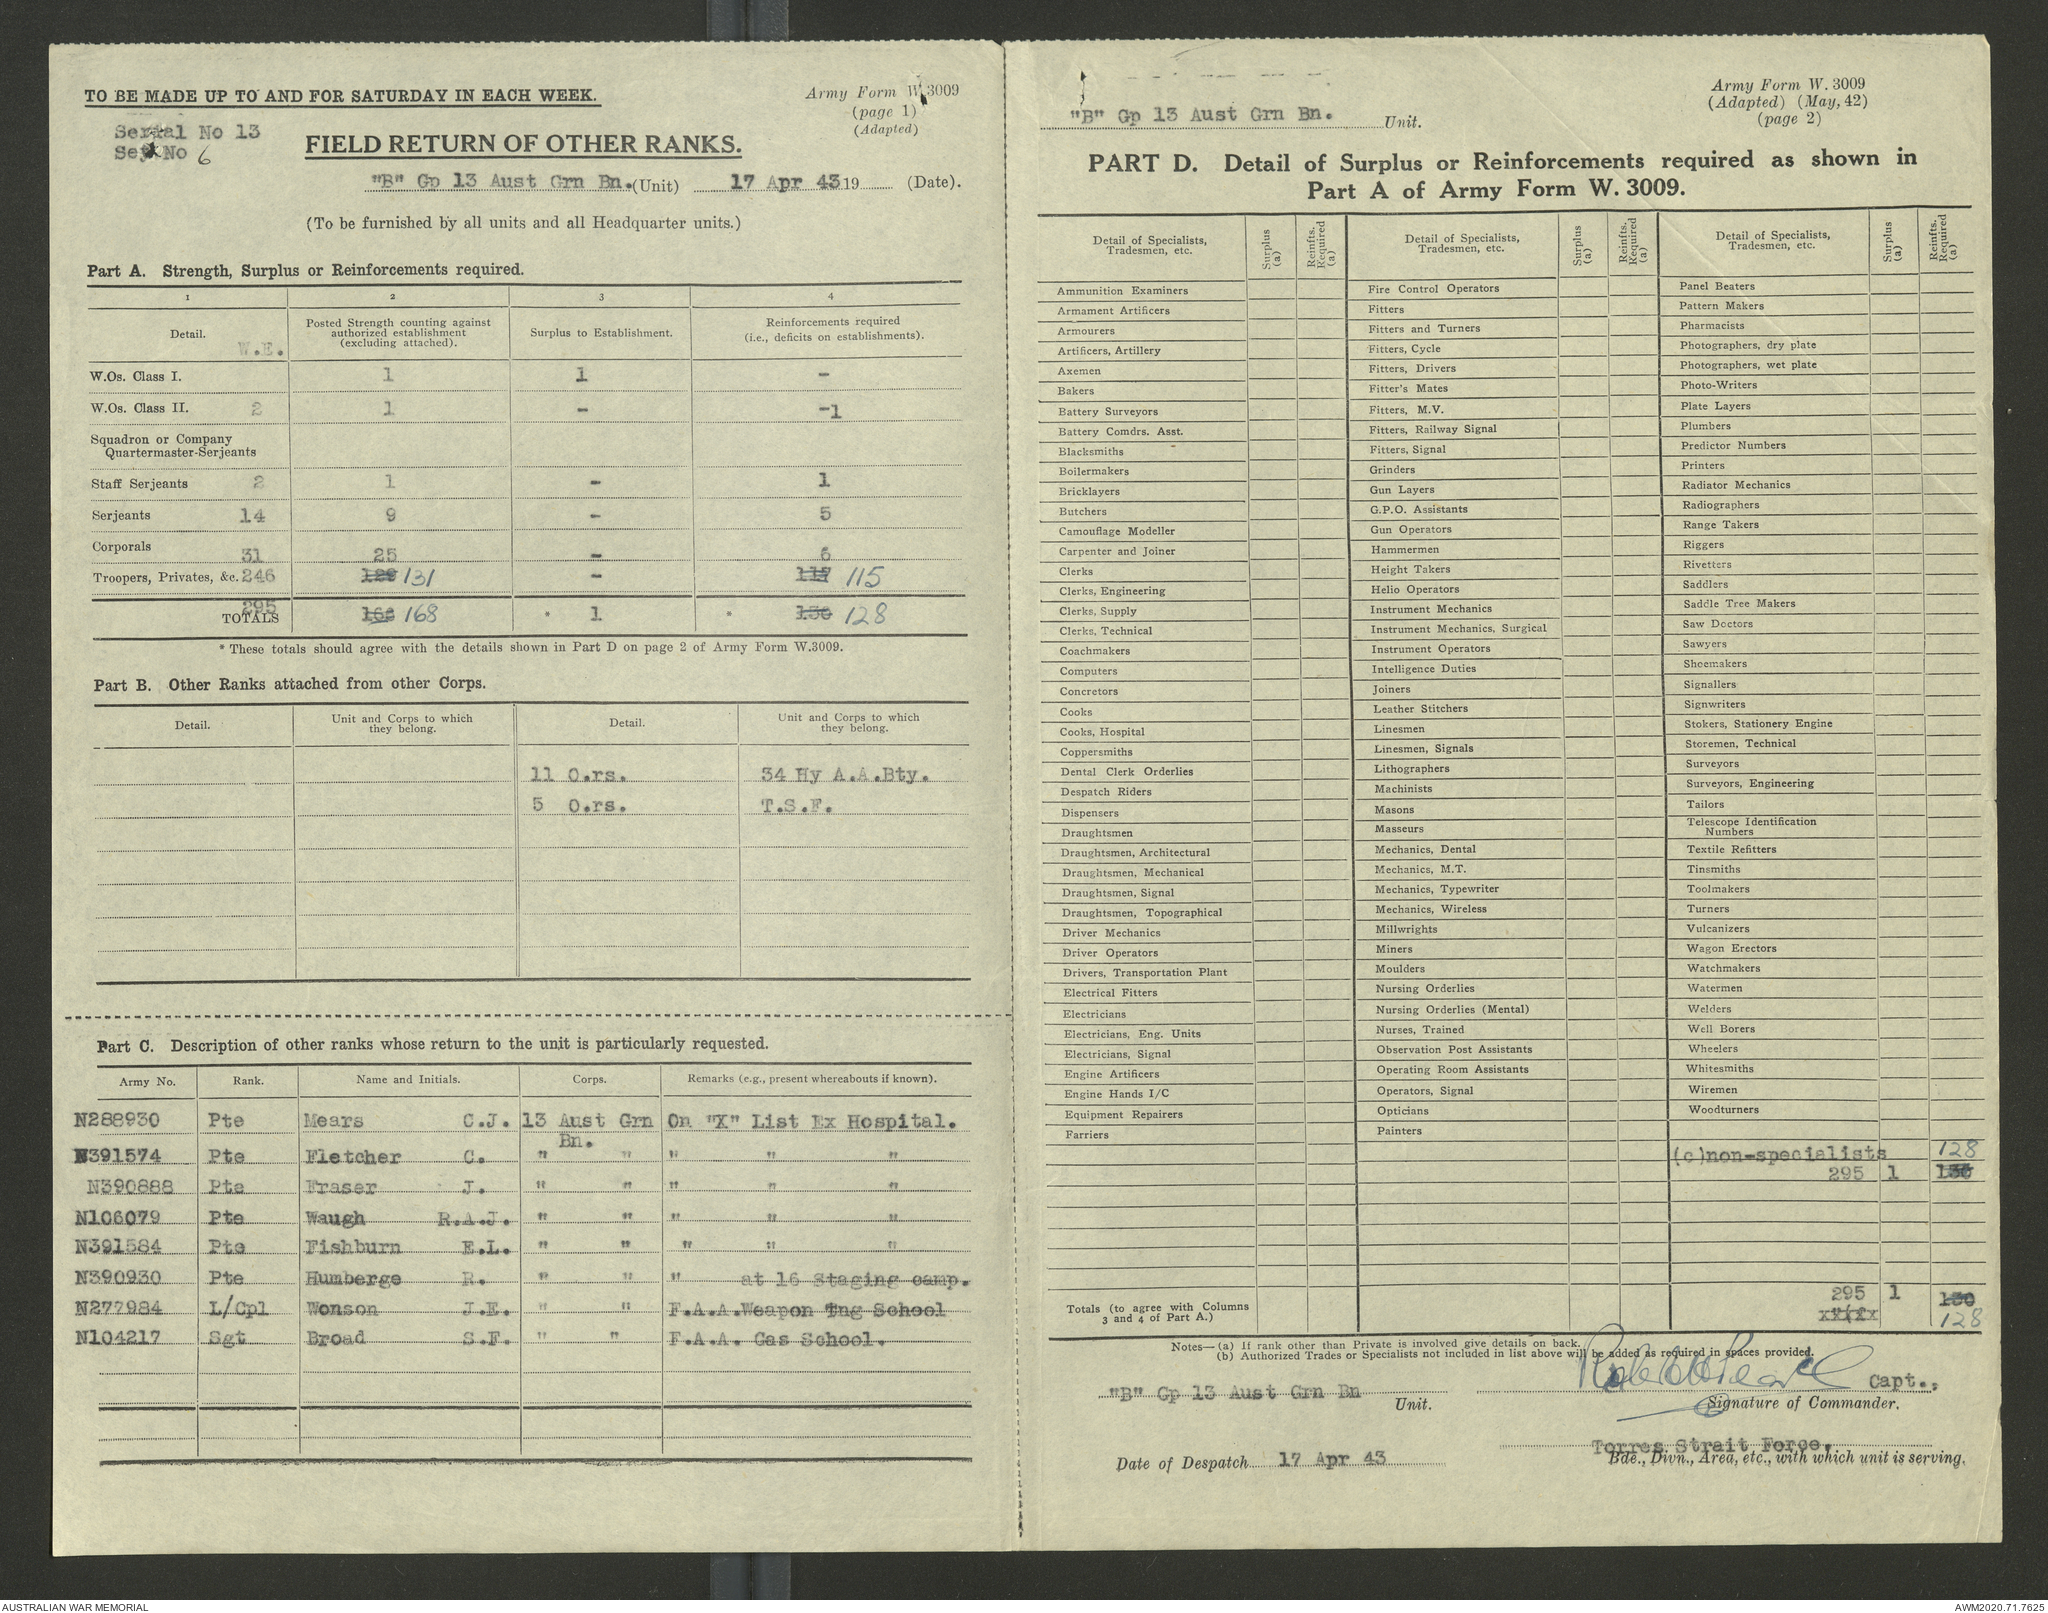 TO BE MADE UP TO AND FOR SATURDAY IN EACH WEEK.
Army Form W.3009
(page 1)
(Adapted)
Serial No 13
Set No 6
FIELD RETURN OF OTHER RANKS.
"B" Gp 13 Aust Grn Bn. (Unit) 17 Apr 43 19 (Date).
(To be furnished by all units and all Headquarter units.)
Part A. Strength, Surplus or Reinforcements required.
1 2 3 4
Detail. W.E. Posted Strength counting against authorized establishment (excluding attached). Surplus to Establishment. Reinforcements required (i.e., deficits on establishments).
W.Os. Class I. 1 1 -
W.Os. Class II. 2 1 - -1
Squadron or Company
Quartermaster-Serjeants
Staff Serjeants 2 1 - 1
Serjeants 14 9 - 5
Corporals 31 25 - 6
Troopers, Privates, &c. 246 129 131 - 117 115
TOTALS 295 166 168 * 1 * 130 128
* These totals should agree with the details shown in Part D on page 2 of Army Form W.3009.
Part B. Other Ranks attached from other Corps.
Detail. Unit and Corps to which they belong. Detail. Unit and Corps to which they belong.
11 O.rs. 34 Hy A.A.Bty.
5 O.rs. T.S.F.
Part C. Description of other ranks whose return to the unit is particularly requested.
Army No. Rank. Name and Initials. Corps. Remarks (e.g., present whereabouts if known).
N288930 Pte Mears C.J. 13 Aust Grn Bn. On "X" List Ex Hospital.
N391574 Pte Fletcher C. " " " " "
N390888 Pte Fraser J. " " " " "
N106079 Pte Waugh R.A.J. " " " " "
N391584 Pte Fishburn E.L. " " " " "
N390930 Pte Humberge R. " " " at 16 Staging camp.
N277984 L/Cpl Wonson J.E. " " F.A.A.Weapon Tng School
N104217 Sgt Broad S.F. " " F.A.A. Gas School.
"B" Gp 13 Aust Grn Bn. Unit.
Army Form W. 3009
(Adapted) (May, 42)
(page 2)
PART D. Detail of Surplus or Reinforcements required as shown in
Part A of Army Form W. 3009.
Detail of Specialists, Tradesmen, etc. Surplus (a) Reinfts. Required (a)
Ammunition Examiners
Armament Artificers
Armourers
Artificers, Artillery
Axemen
Bakers
Battery Surveyors
Battery Comdrs. Asst.
Blacksmiths
Boilermakers
Bricklayers
Butchers
Camouflage Modeller
Carpenter and Joiner
Clerks
Clerks, Engineering
Clerks, Supply
Clerks, Technical
Coachmakers
Computers
Concretors
Cooks
Cooks, Hospital
Coppersmiths
Dental Clerk Orderlies
Despatch Riders
Dispensers
Draughtsmen
Draughtsmen, Architectural
Draughtsmen, Mechanical
Draughtsmen, Signal
Draughtsmen, Topographical
Driver Mechanics
Driver Operators
Drivers, Transportation Plant
Electrical Fitters
Electricians
Electricians, Eng. Units
Electricians, Signal
Engine Artificers
Engine Hands I/C
Equipment Repairers
Farriers
Detail of Specialists, Tradesmen, etc. Surplus (a) Reinfts. Required (a)
Fire Control Operators
Fitters
Fitters and Turners
Fitters, Cycle
Fitters, Drivers
Fitter's Mates
Fitters, M.V.
Fitters, Railway Signal
Fitters, Signal
Grinders
Gun Layers
G.P.O. Assistants
Gun Operators
Hammermen
Height Takers
Helio Operators
Instrument Mechanics
Instrument Mechanics, Surgical
Instrument Operators
Intelligence Duties
Joiners
Leather Stitchers
Linesmen
Linesmen, Signals
Lithographers
Machinists
Masons
Masseurs
Mechanics, Dental
Mechanics, M.T.
Mechanics, Typewriter
Mechanics, Wireless
Millwrights
Miners
Moulders
Nursing Orderlies
Nursing Orderlies (Mental)
Nurses, Trained
Observation Post Assistants
Operating Room Assistants
Operators, Signal
Opticians
Painters
Detail of Specialists, Tradesmen, etc. Surplus (a) Reinfts. Required (a)
Panel Beaters
Pattern Makers
Pharmacists
Photographers, dry plate
Photographers, wet plate
Photo-Writers
Plate Layers
Plumbers
Predictor Numbers
Printers
Radiator Mechanics
Radiographers
Range Takers
Riggers
Rivetters
Saddlers
Saddle Tree Makers
Saw Doctors
Sawyers
Shoemakers
Signallers
Signwriters
Stokers, Stationery Engine
Storemen, Technical
Surveyors
Surveyors, Engineering
Tailors
Telescope Identification
Numbers
Textile Refitters
Tinsmiths
Toolmakers
Turners
Vulcanizers
Wagon Erectors
Watchmakers
Watermen
Welders
Well Borers
Wheelers
Whitesmiths
Wiremen
Woodturners
(c)non-specialists 128
295 1 130
Totals (to agree with Columns 3 and 4 of Part A.) 295 1 130
128
Notes—(a) If rank other than Private is involved give details on back.
(b) Authorized Trades or Specialists not included in list above will be added as required in spaces provided.
"B" Gp 13 Aust Grn Bn Unit.
Capt.,
Signature of Commander.
Torres Strait Force.
Bde., Divn., Area, etc., with which unit is serving.
Date of Despatch 17 Apr 43
AUSTRALIAN WAR MEMORIAL
AWM2020.71.7625